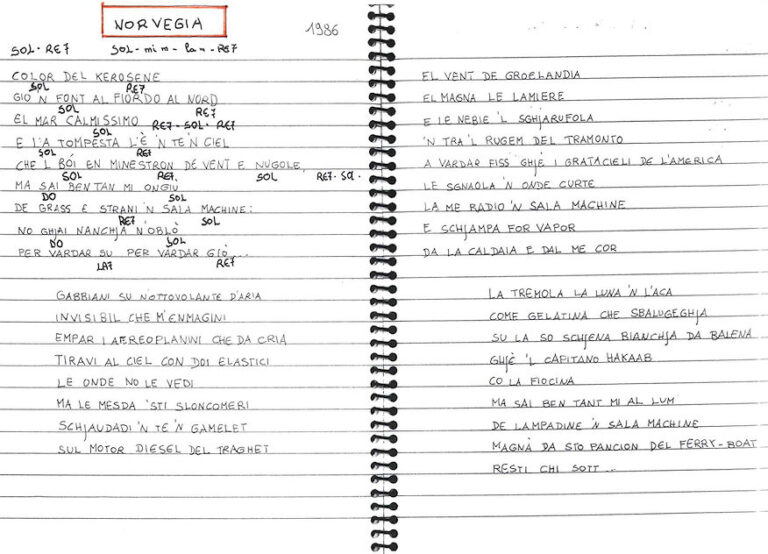 NORVEGIA
1986
SOL - RE7 SOL - mi m - la m - RE7
COLOR DEL KEROSENE
SOL RE7
GIO 'N FONT AL FIORDO AL NORD
SOL RE7
EL MAR CALMISSIMO RE7 - SOL - RE7
SOL
E L'A TOMPESTA L'È 'N TE 'N CIEL
SOL RE7
CHE L BÓI EN MINESTRON DE VENT E NUGOLE,
SOL RE7. SOL RE7. SOL.
MA SAI BEN TAN MI ONGIU
DO SOL
DE GRASS E STRANI 'N SALA MACHINE:
RE7 SOL
NO GHJAI NANCHJA N'OBLÒ
DO SOL
PER VARDAR SU PER VARDAR GIÒ...
LA7 RE7
GABBIANI SU NOTTOVOLANTE D'ARIA
INVISIBIL CHE M'ENMAGINI
EMPAR I AEREOPLANINI CHE DA CRIA
TIRAVI AL CIEL CON DOI ELASTICI
LE ONDE NO LE VEDI
MA LE MESDA 'STI SLONCOMERI
SCHJAUDADI 'N TE 'N GAMELET
SUL MOTOR DIESEL DEL TRAGHET
EL VENT DE GROELANDIA
EL MAGNA LE LAMIERE
E LE NEBIE 'L SGHJARUFOLA
'N TRA 'L RUGEM DEL TRAMONTO
A VARDAR FISS GHJÈ I GRATACIELI DE L'AMERICA
LE SGNAOLA 'N ONDE CURTE
LA ME RADIO 'N SALA MACHINE
E SCHJAMPA FOR VAPOR
DA LA CALDAIA E DAL ME COR
LA TREMOLA LA LUNA 'N L'ACA
COME GELATINA CHE SBALUGEGHJA
SU LA SO SCHJENA BIANCHJA DA BALENA
GHJÈ 'L CAPITANO HAKAAB
CO LA FIOCINA
MA SAI BEN TANT MI AL LUM
DE LAMPADINE 'N SALA MACHINE
MAGNÀ DA STO PANCION DEL FERRY-BOAT
RESTI CHI SOTT...